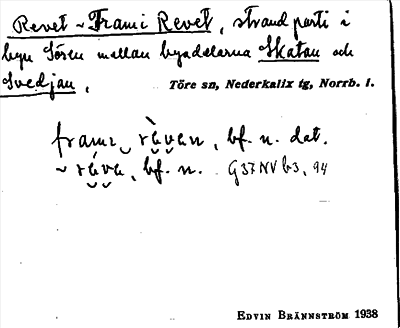 Revet ~ Fram i Revet, strandparti i
byn Sören mellan byadelarna Skatan och
Svedjan.
Töre sn, Nederkalix tg, Norrb. l.
framı rävan, bf. n. dat.
~ räva, bf. n. G37NV b3, 94
EDVIN BRÄNNSTRÖM 1938